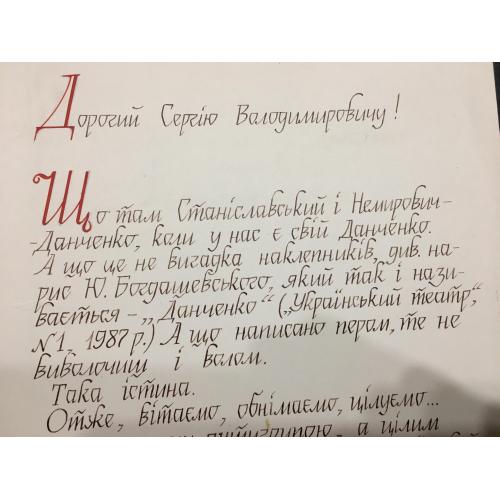 Дорогий Сергію Володимировичу!
Що там Станіславський і Немирович-
-Данченко, коли у нас є свій Данченко.
А що це не вигадка наклепників, див. на-
рис Ю. Богдашевського, який так і нази-
вається – „Данченко“ („Український театр“,
№1, 1987 р.) А що написано пером, те не
виволочиш і волом.
Така істина.
Отже, вітаємо, обнімаємо, цілуємо...
а цілим